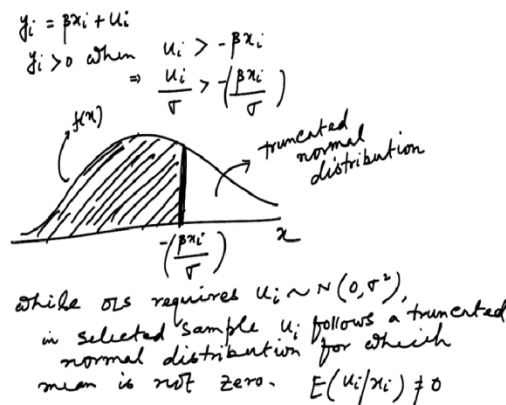 yᵢ = βxᵢ + uᵢ
yᵢ > 0 when uᵢ > -βxᵢ
⇒ uᵢ/σ > -(βxᵢ/σ)
f(x)
truncated
normal
distribution
-(βxᵢ/σ)
x
while OLS requires uᵢ ~ N(0, σ²),
in selected sample uᵢ follows a truncated
normal distribution for which
mean is not zero. E(uᵢ/xᵢ) ≠ 0